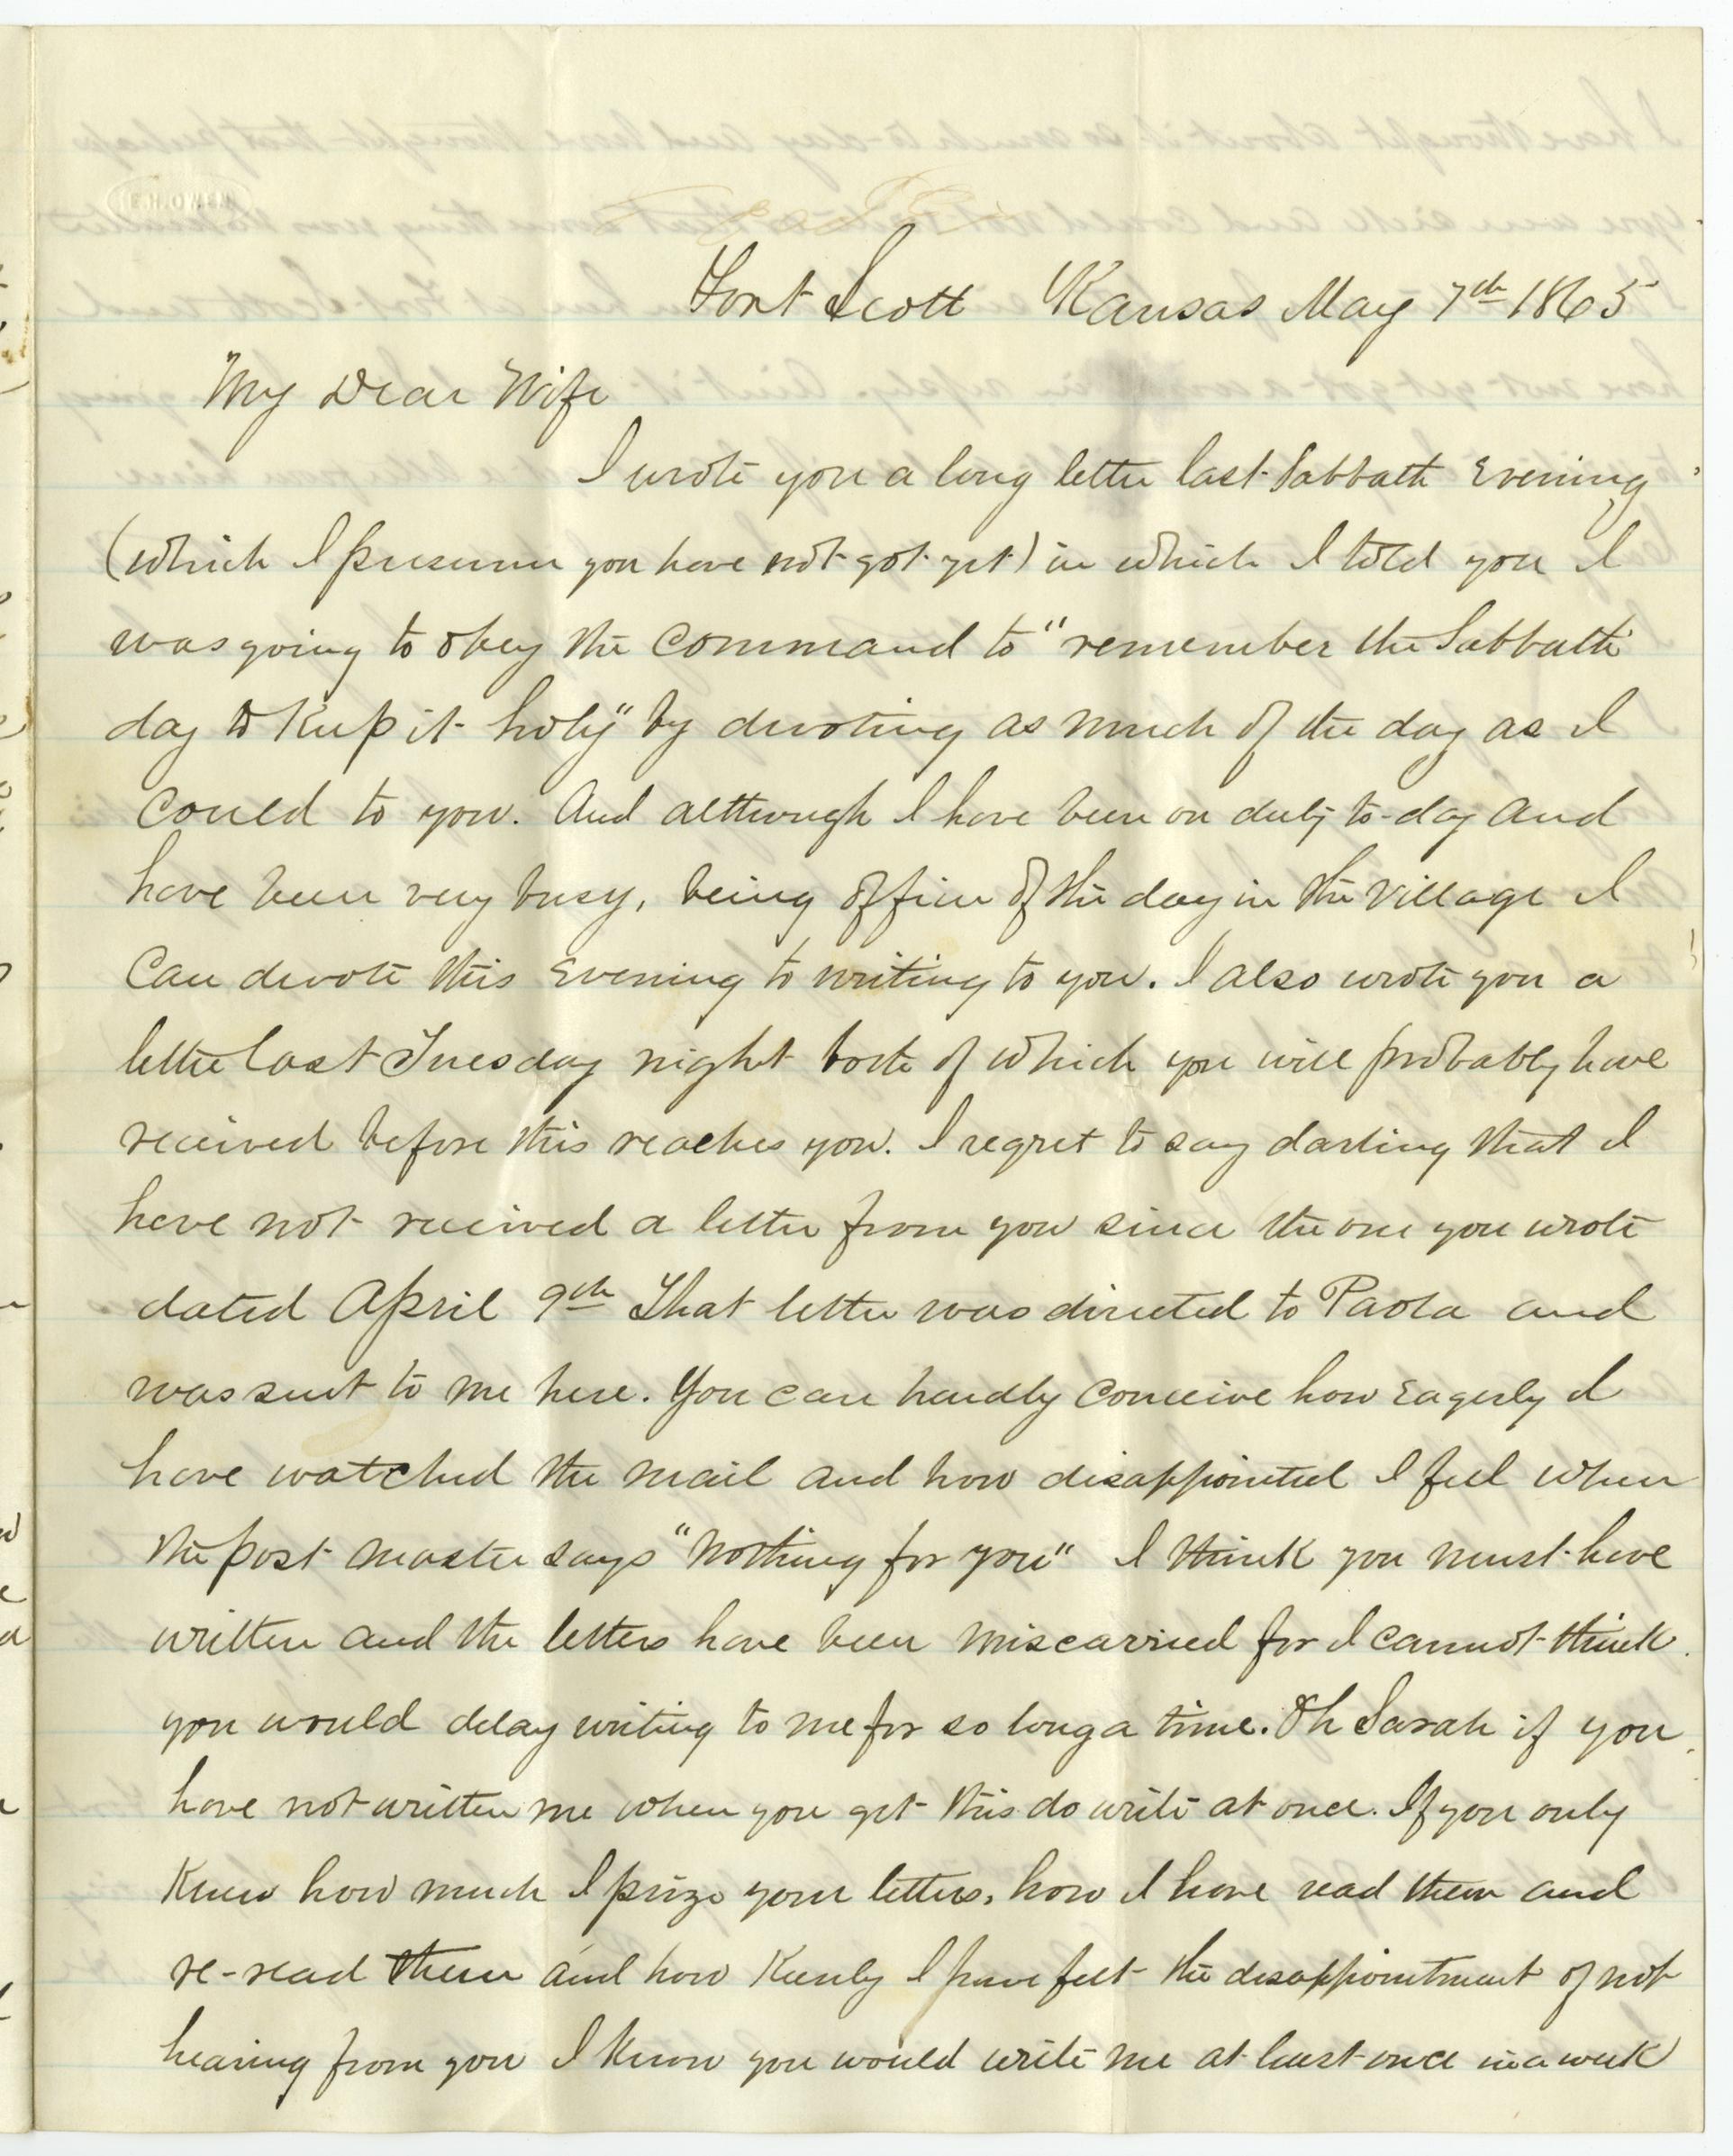 E.H. OWEN
Fort Scott Kansas May 7th 1865
My Dear Wife
I wrote you a long letter last Sabbath Evening
(which I presume you have not got yet) in which I told you I
was going to obey the command to "remember the Sabbath
day to Keep it holy" by devoting as much of the day as I
could to you. And although I have been on duty to-day and
have been very busy, being officer of the day in the Village I
Can devote this Evening to writing to you. I also wrote you a
letter last Tuesday night both of which you will probably have
received before this reaches you. I regret to say darling that I
have not received a letter from you since the one you wrote
dated April 9th That letter was directed to Paola and
was sent to me here. You can hardly conceive how Eagerly I
have watched the mail and how disappointed I feel when
the post master says "Nothing for you" I think you must have
written and the letters have been miscarried for I cannot think
you would delay writing to me for so long a time. Oh Sarah if you
have not written me when you get this do write at once. If you only
Knew how much I prize your letters, how I have read them and
re-read them and how Keenly I have felt the disappointment of not
hearing from you I know you would write me at least once in a week